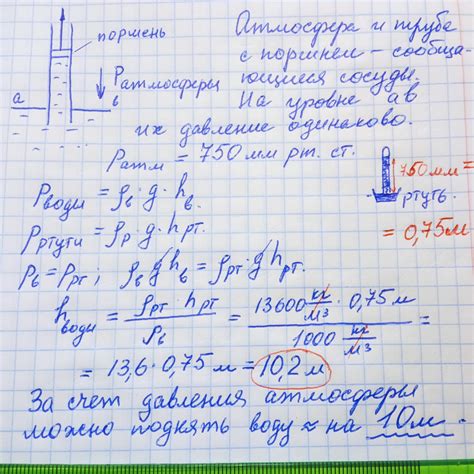 поршень
Атмосфера и труба
с поршнем – сообща-
ющиеся сосуды.
Pатмосферы
а
в
На уровне ав
их давление одинаково.
Pатм = 750 мм рт. ст.
750 мм =
ртуть
= 0,75 м
Pводы = ρв · g · hв.
Pртути = ρр · g · hрт.
Pв = Pрт ; ρв g hв = ρрт · g hрт.
hводы = ρрт · hрт / ρв = 13600 кг/м3 · 0,75 м / 1000 кг/м3 =
= 13,6 · 0,75 м = 10,2 м
За счет давления атмосферы
можно поднять воду ≈ на 10 м.